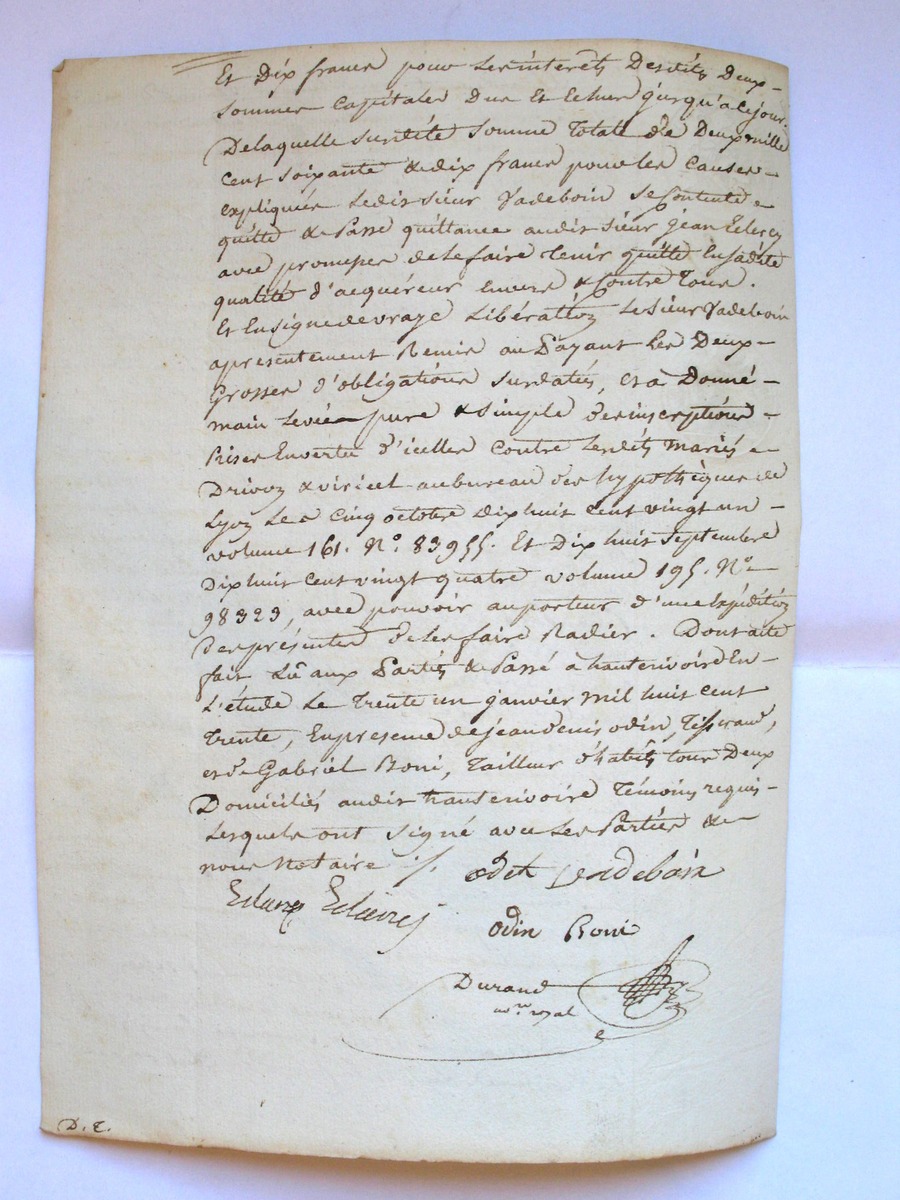 Et Dix francs pour les interets Desdites Deux
sommes capitales Dus Et Echus jusqu'a ce jour.
De laquelle susditte somme Totale de Deux mille
cent soixante & dix francs pour les causes
expliquées ledit sieur Vadeboin se Contente
quitte & Passe quittance audit sieur jean
avec promesses de le faire tenir quitte En sadite
qualité d'acquéreur Envers & Contre Tous.
Et En signe de vraye Libération Le sieur Vadeboin
a presentement Remis au Payant Les Deux
Grosses d'obligations susdatées, et a Donné
main levée pure & simple des inscriptions
Prises En vertu d'icelles contre lesdits mariés
Drivon & viricel au bureau des hypothèques de
Lyon Les cinq octobre Dix huit cent vingt un
volume 161. No. 83955. Et Dix huit septembre
Dix huit cent vingt quatre volume 195. No
98323, avec pouvoir au porteur d'une Expédition
des présentes de les faire Radier. Dont acte
fait Lû aux Parties & Passé à hauterivoire En
L'étude Le trente un janvier mil huit cent
trente, En presence de jean denis odin, Tisserand,
et de Gabriel Boni, Tailleur d'habits tous Deux
Domiciliés audit hauterivoire Témoins requis
Lesquels ont signé avec Les Parties &
nous Notaire
odin Boni
Durand
nre royal
D. T.